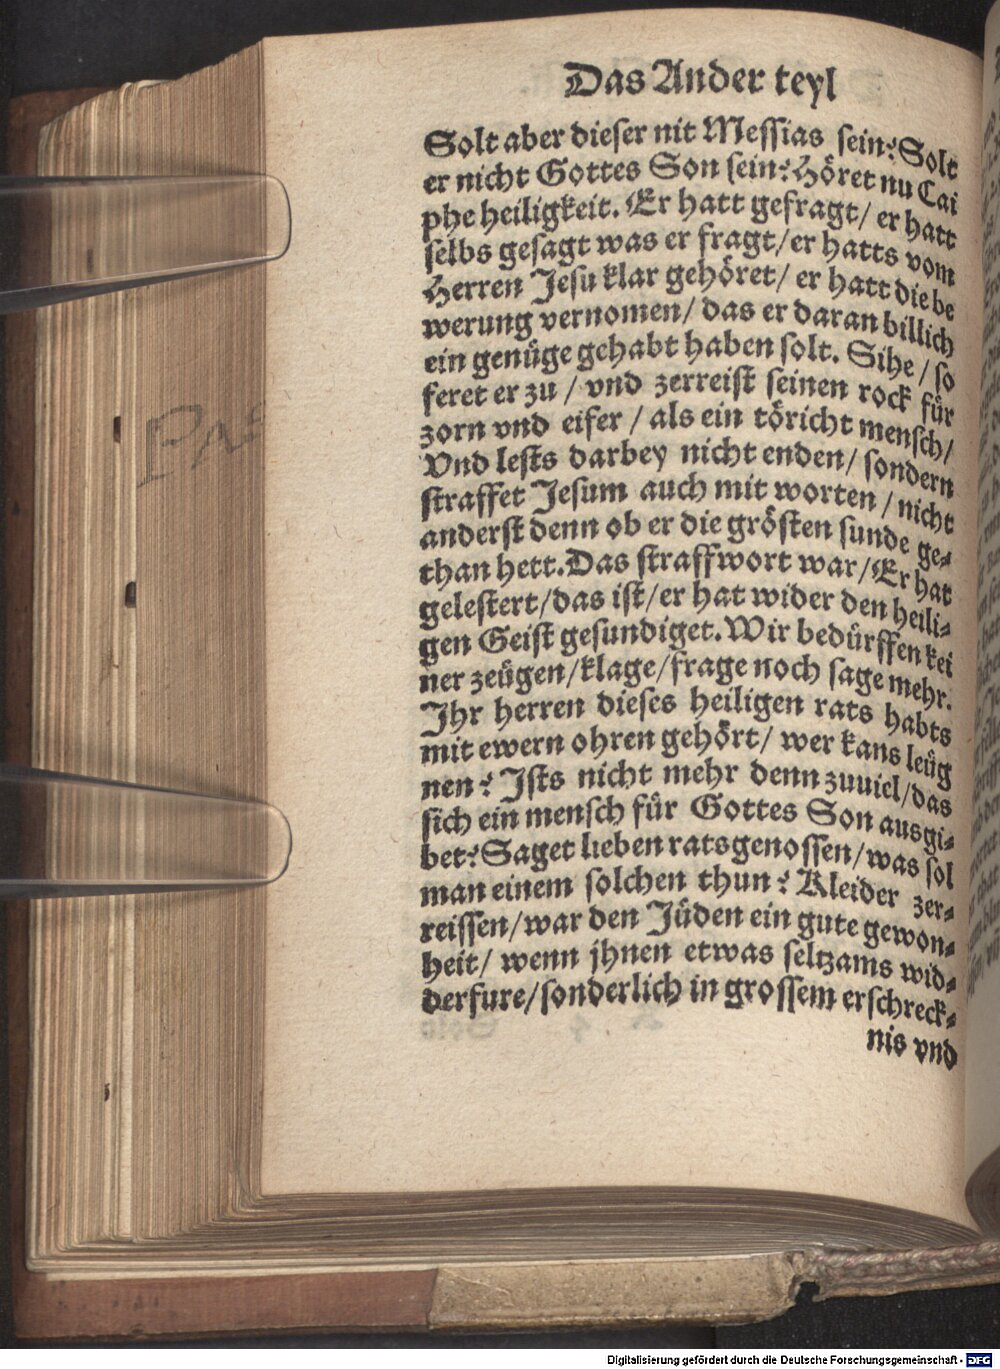 Das Ander teyl
Solt aber dieser nit Messias sein? Solt
er nicht Gottes Son sein? Höret nu Cai
phe heiligkeit. Er hatt gefragt/ er hatt
selbs gesagt was er fragt/ er hatts vom
Herren Jesu klar gehöret/ er hatt die be
werung vernomen/ das er daran billich
ein genüge gehabt haben solt. Sihe/ so
feret er zu/ vnd zerreist seinen rock für
zorn vnd eifer/ als ein töricht mensch/
Vnd lests darbey nicht enden/ sondern
straffet Jesum auch mit worten/ nicht
anderst denn ob er die grösten sunde ge⸗
than hett. Das straffwort war/ Er hat
gelestert/ das ist/ er hat wider den heili⸗
gen Geist gesundiget. Wir bedürffen kei
ner zeügen/ klage/ frage noch sage mehr.
Ihr herren dieses heiligen rats habts
mit ewern ohren gehört/ wer kans leüg
nen? Ists nicht mehr denn zuuiel/ das
sich ein mensch für Gottes Son ausgi⸗
bet? Saget lieben ratsgenossen/ was sol
man einem solchen thun? Kleider zer⸗
reissen/ war den Jüden ein gute gewon⸗
heit/ wenn jhnen etwas seltzams wid⸗
derfure/ sonderlich in grossem erschreck⸗
nis vnd
Digitalisierung gefördert durch die Deutsche Forschungsgemeinschaft - DFG